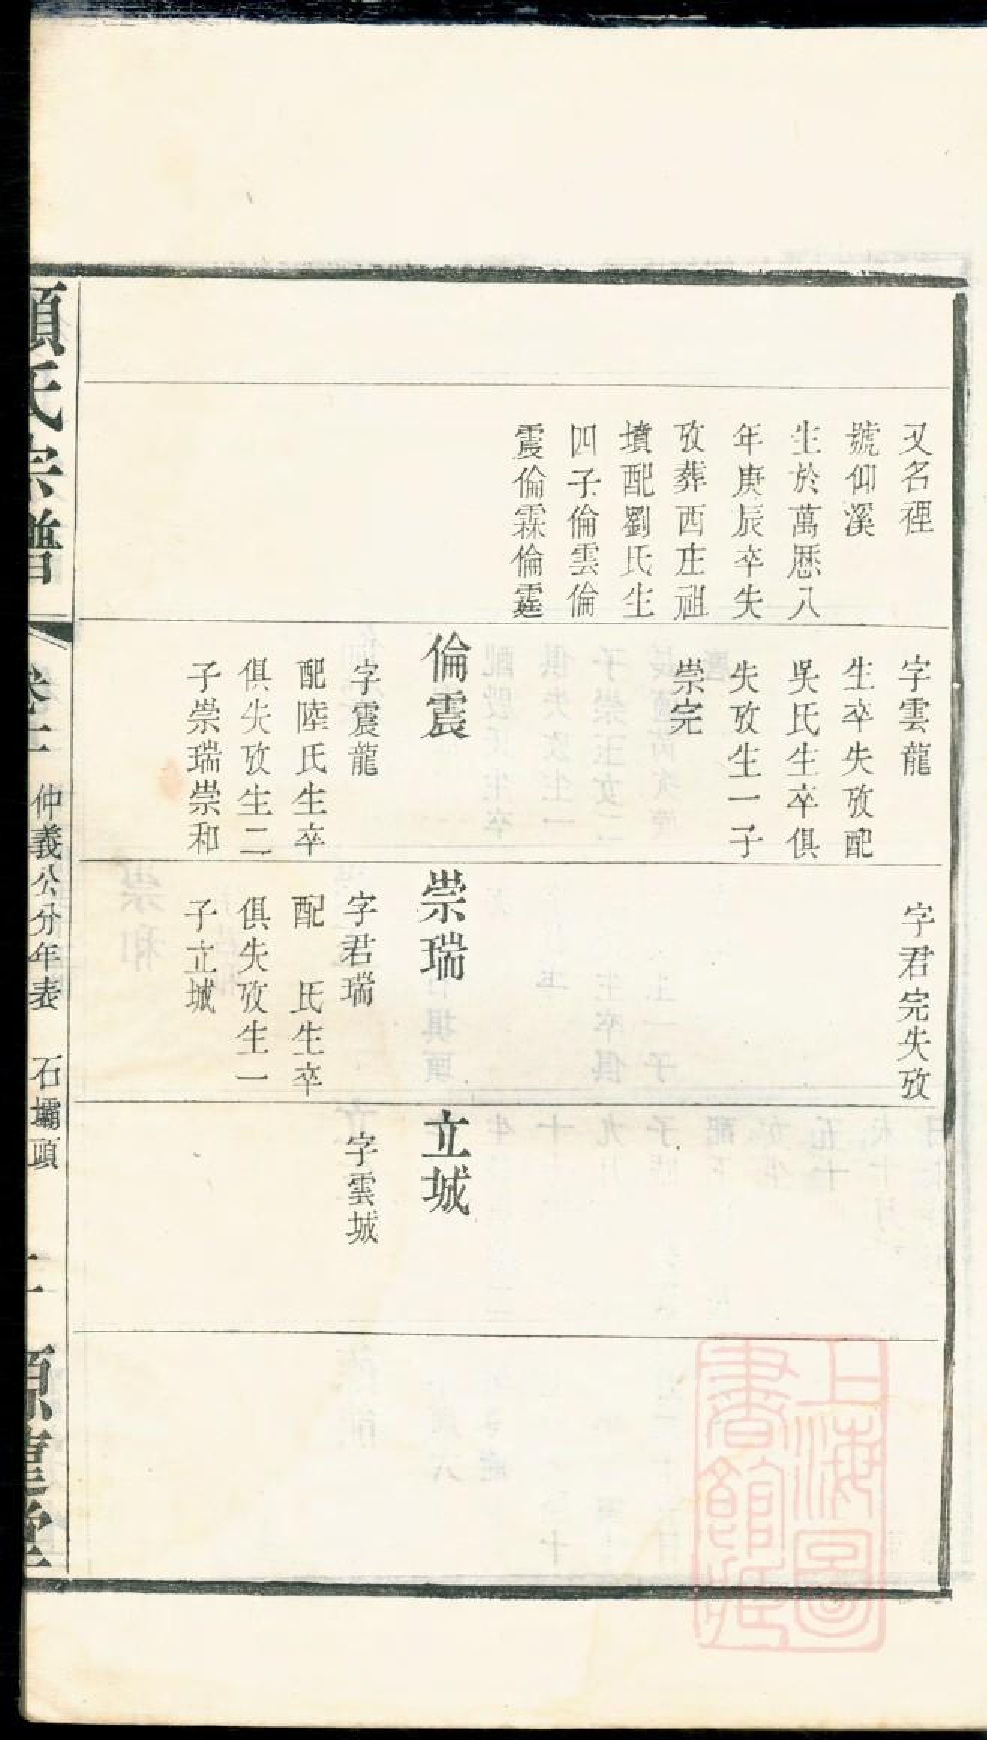 又名裡
號仰溪
生於萬歷八
年庚辰卒失
攷葬西庄祖
墳配劉氏生
四子倫雲倫
震倫霖倫霆
字雲龍
生卒失攷配
吳氏生卒俱
失攷生一子
崇完
倫震
字震龍
配陸氏生卒
俱失攷生二
子崇瑞崇和
字君完失攷
崇瑞
字君瑞
配　氏生卒
俱失攷生一
子立城
立城
字雲城
氏宗譜
仲義公分年表
石壩頭
堂
上海圖
書館藏